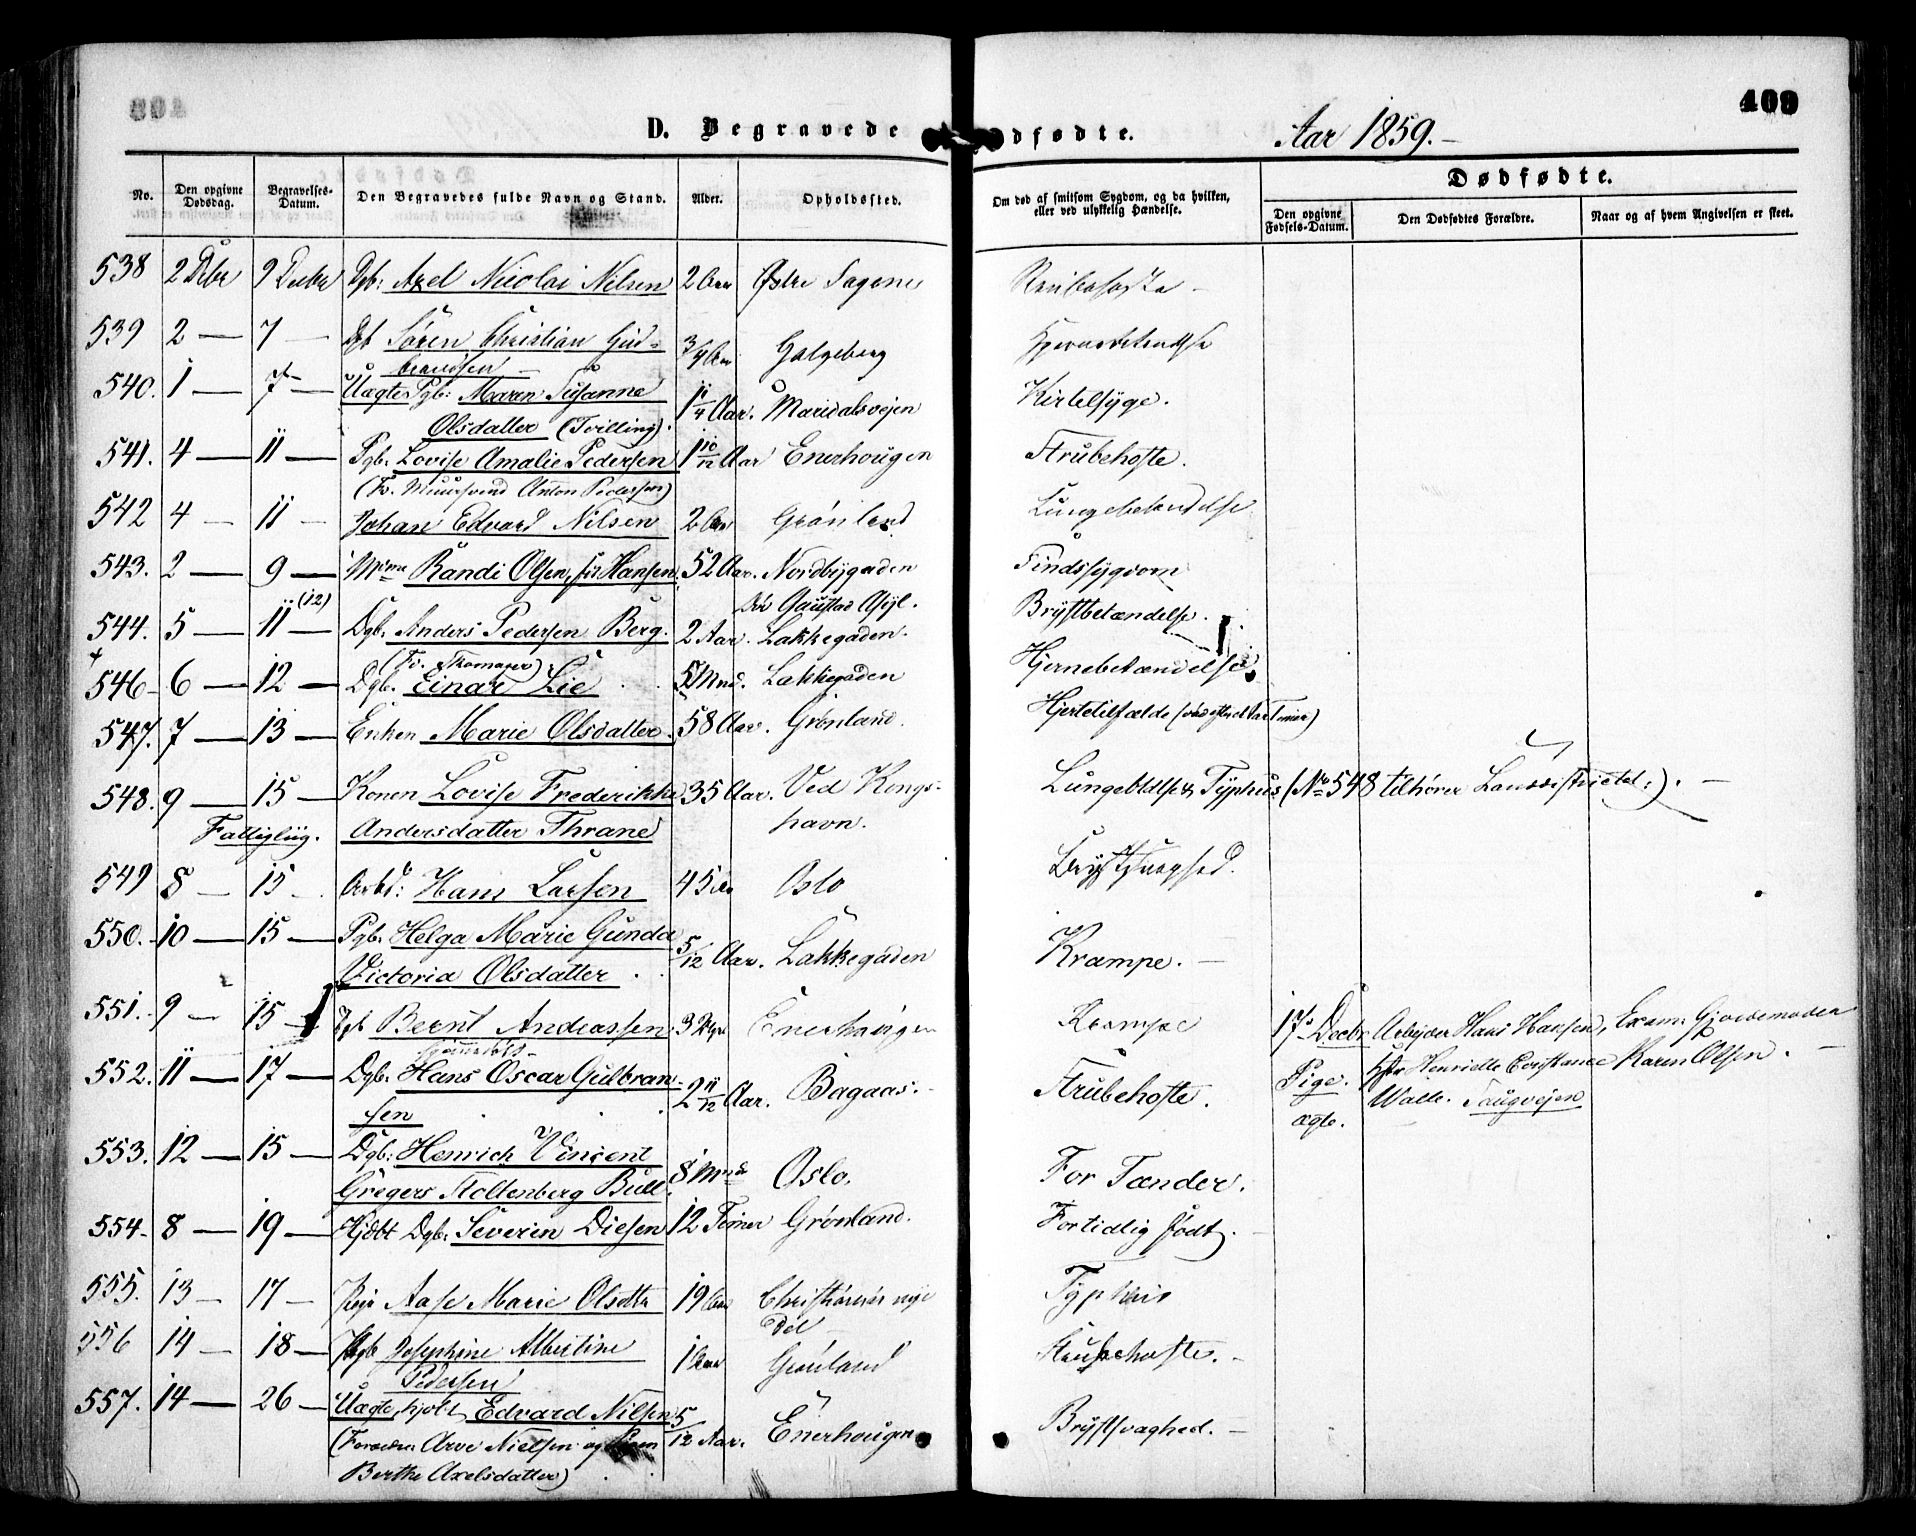 409
D. Begravede
Dødfødte.
Aar 1859.
No.
Den opgivne Dødsdag.
Begravelses-Datum.
Den Begravedes fulde Navn og Stand.
Alder.
Opholdssted.
Om død af smitsom Sygdom, og da hvilken, eller ved ulykkelig Hændelse.
Dødfødte.
Den opgivne Fødsels-Datum.
Den Dødfødtes Forældre.
Naar og af hvem Angivelsen er skeet.
538 2 Debr 9 Decbr Dgb: Axel Nicolai Nilsen 2 Aar Østre Sagene
539 2 — 7 — Dgb Søren Christian Gud- 3/4 Aar Galgeberg
brandsen
540. 1 — 7 — Uægte Pgb: Maren Susanne 1 1/4 Aar. Maridalsvejen Kirtelsyge.
Olsdatter (Tvilling).
541. 4 — 11 — Pgb. Lovise Amalie Pedersen 1 10/12 Aar Enerhougen Strubehoste.
(Fr. Muursvend Anton Pedersen)
542 4 — 11 — Johan Edvard Nilsen 2 Aar Grønland Lungebetændelse
543. 2 — 9 — Mme Randi Olsen, f. Hansen. 52 Aar. Nordbygaden Sindssygdom
(12) Gaustad Asyl.
544. 5 — 11 — Dgb. Anders Pedersen Berg. 2 Aar. Lakkegaden. Brystbetændelse.
(Fr. Skomager)
546 6 — 12 — Dgb. Einar Lie 5 Mnd. Lakkegaden Hjernebetændelse
547. 7 — 13 — Enken Marie Olsdatter. 58 Aar. Grønland. Hjertetilfælde
548. 9 — 15 — Konen Lovise Frederikke 35 Aar. Ved Kongs- Typhus (No 548 tilhører
Fattiglig. Andersdatter Thrane havn.
549 8 — 15 — Arbd: Hans Larsen 45 Aar Oslo Brystsvaghed.
550. 10 — 15 — Pgb. Helga Marie Gunda 5/12 Aar. Lakkegaden Krampe. —
Victoria Olsdatter.
551. 9 — 15 — Dgb Bernt Andreassen 3 Enerhaugen Krampe 17 Decbr Arbejder Hans Hansen, Exam. Gjordemoder
552. 11 — 17 — Dgb. Hans Oscar Gulbran- 2 11/12 Aar. Bagaas. Strubehoste. Pige. Henriette Constance Karen Olsen. —
sen ægte. Walle.
553. 12 — 15 — Dgb: Henrich Vincent 8 Mnd Oslo. For Tænder.
Gregers Stoltenberg Bull.
554 8 — 19 — Hjdbt Dgb: Severin Diesen 12 Timer Grønland. Fortidlig født.
555. 13 — 17 — Pige Aase Marie Olsdtr 19 Aar Christianias nye Typhus
Del
556 14 — 18 — Pgb Josephine Albertine 1 Aar Grønland Strubehoste. —
Pedersen
557. 14 — 26 — Uægte, hjdbt Edvard Nilsen 5/12 Aar. Enerhougen Brystsvaghed. —
(Forældre: Arve Nielsen og
Berthe Axelsdatter)